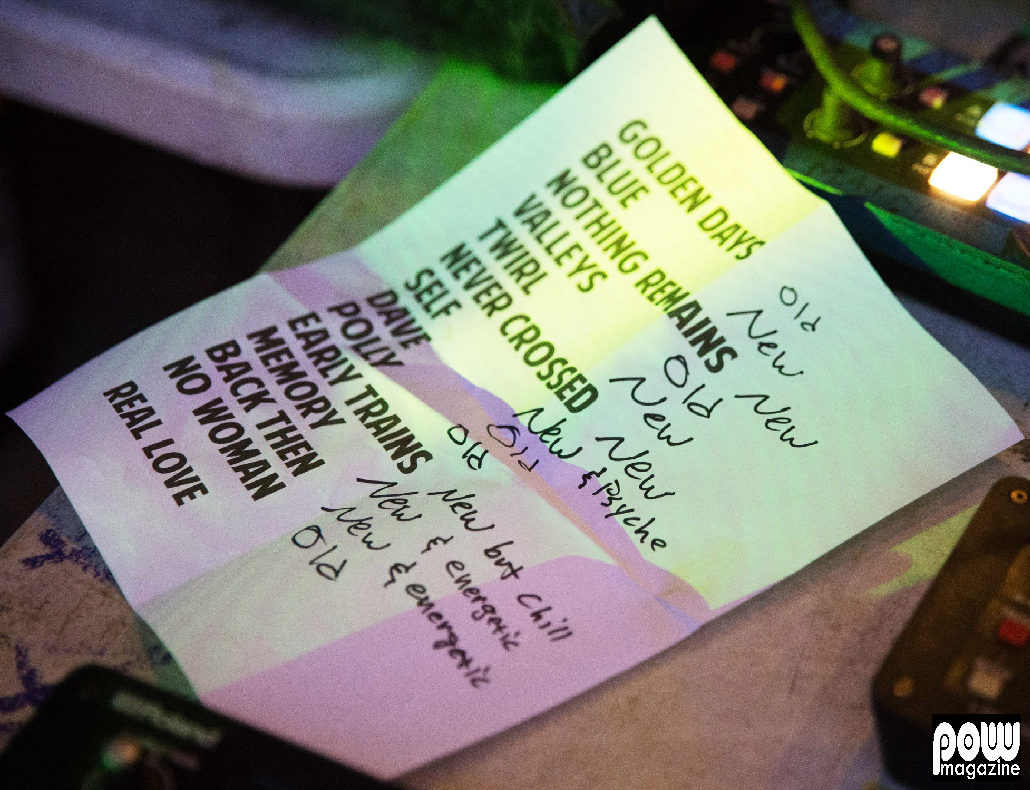 GOLDEN DAYS Old
BLUE New
NOTHING REMAINS New
VALLEYS Old
TWIRL New
NEVER CROSSED New
SELF New & Psyche
DAVE Old
POLLY Old
EARLY TRAINS New but chill
MEMORY New & energetic
BACK THEN New & energetic
NO WOMAN Old
REAL LOVE
POW
magazine